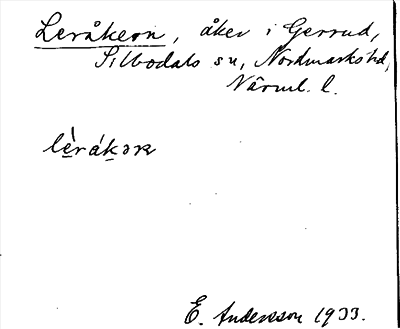 Leråkern, åker i Gerrud,
Silbodals sn, Nordmarks hd,
Värml. l.
lèrákɔrn
E. Andersson 1933.